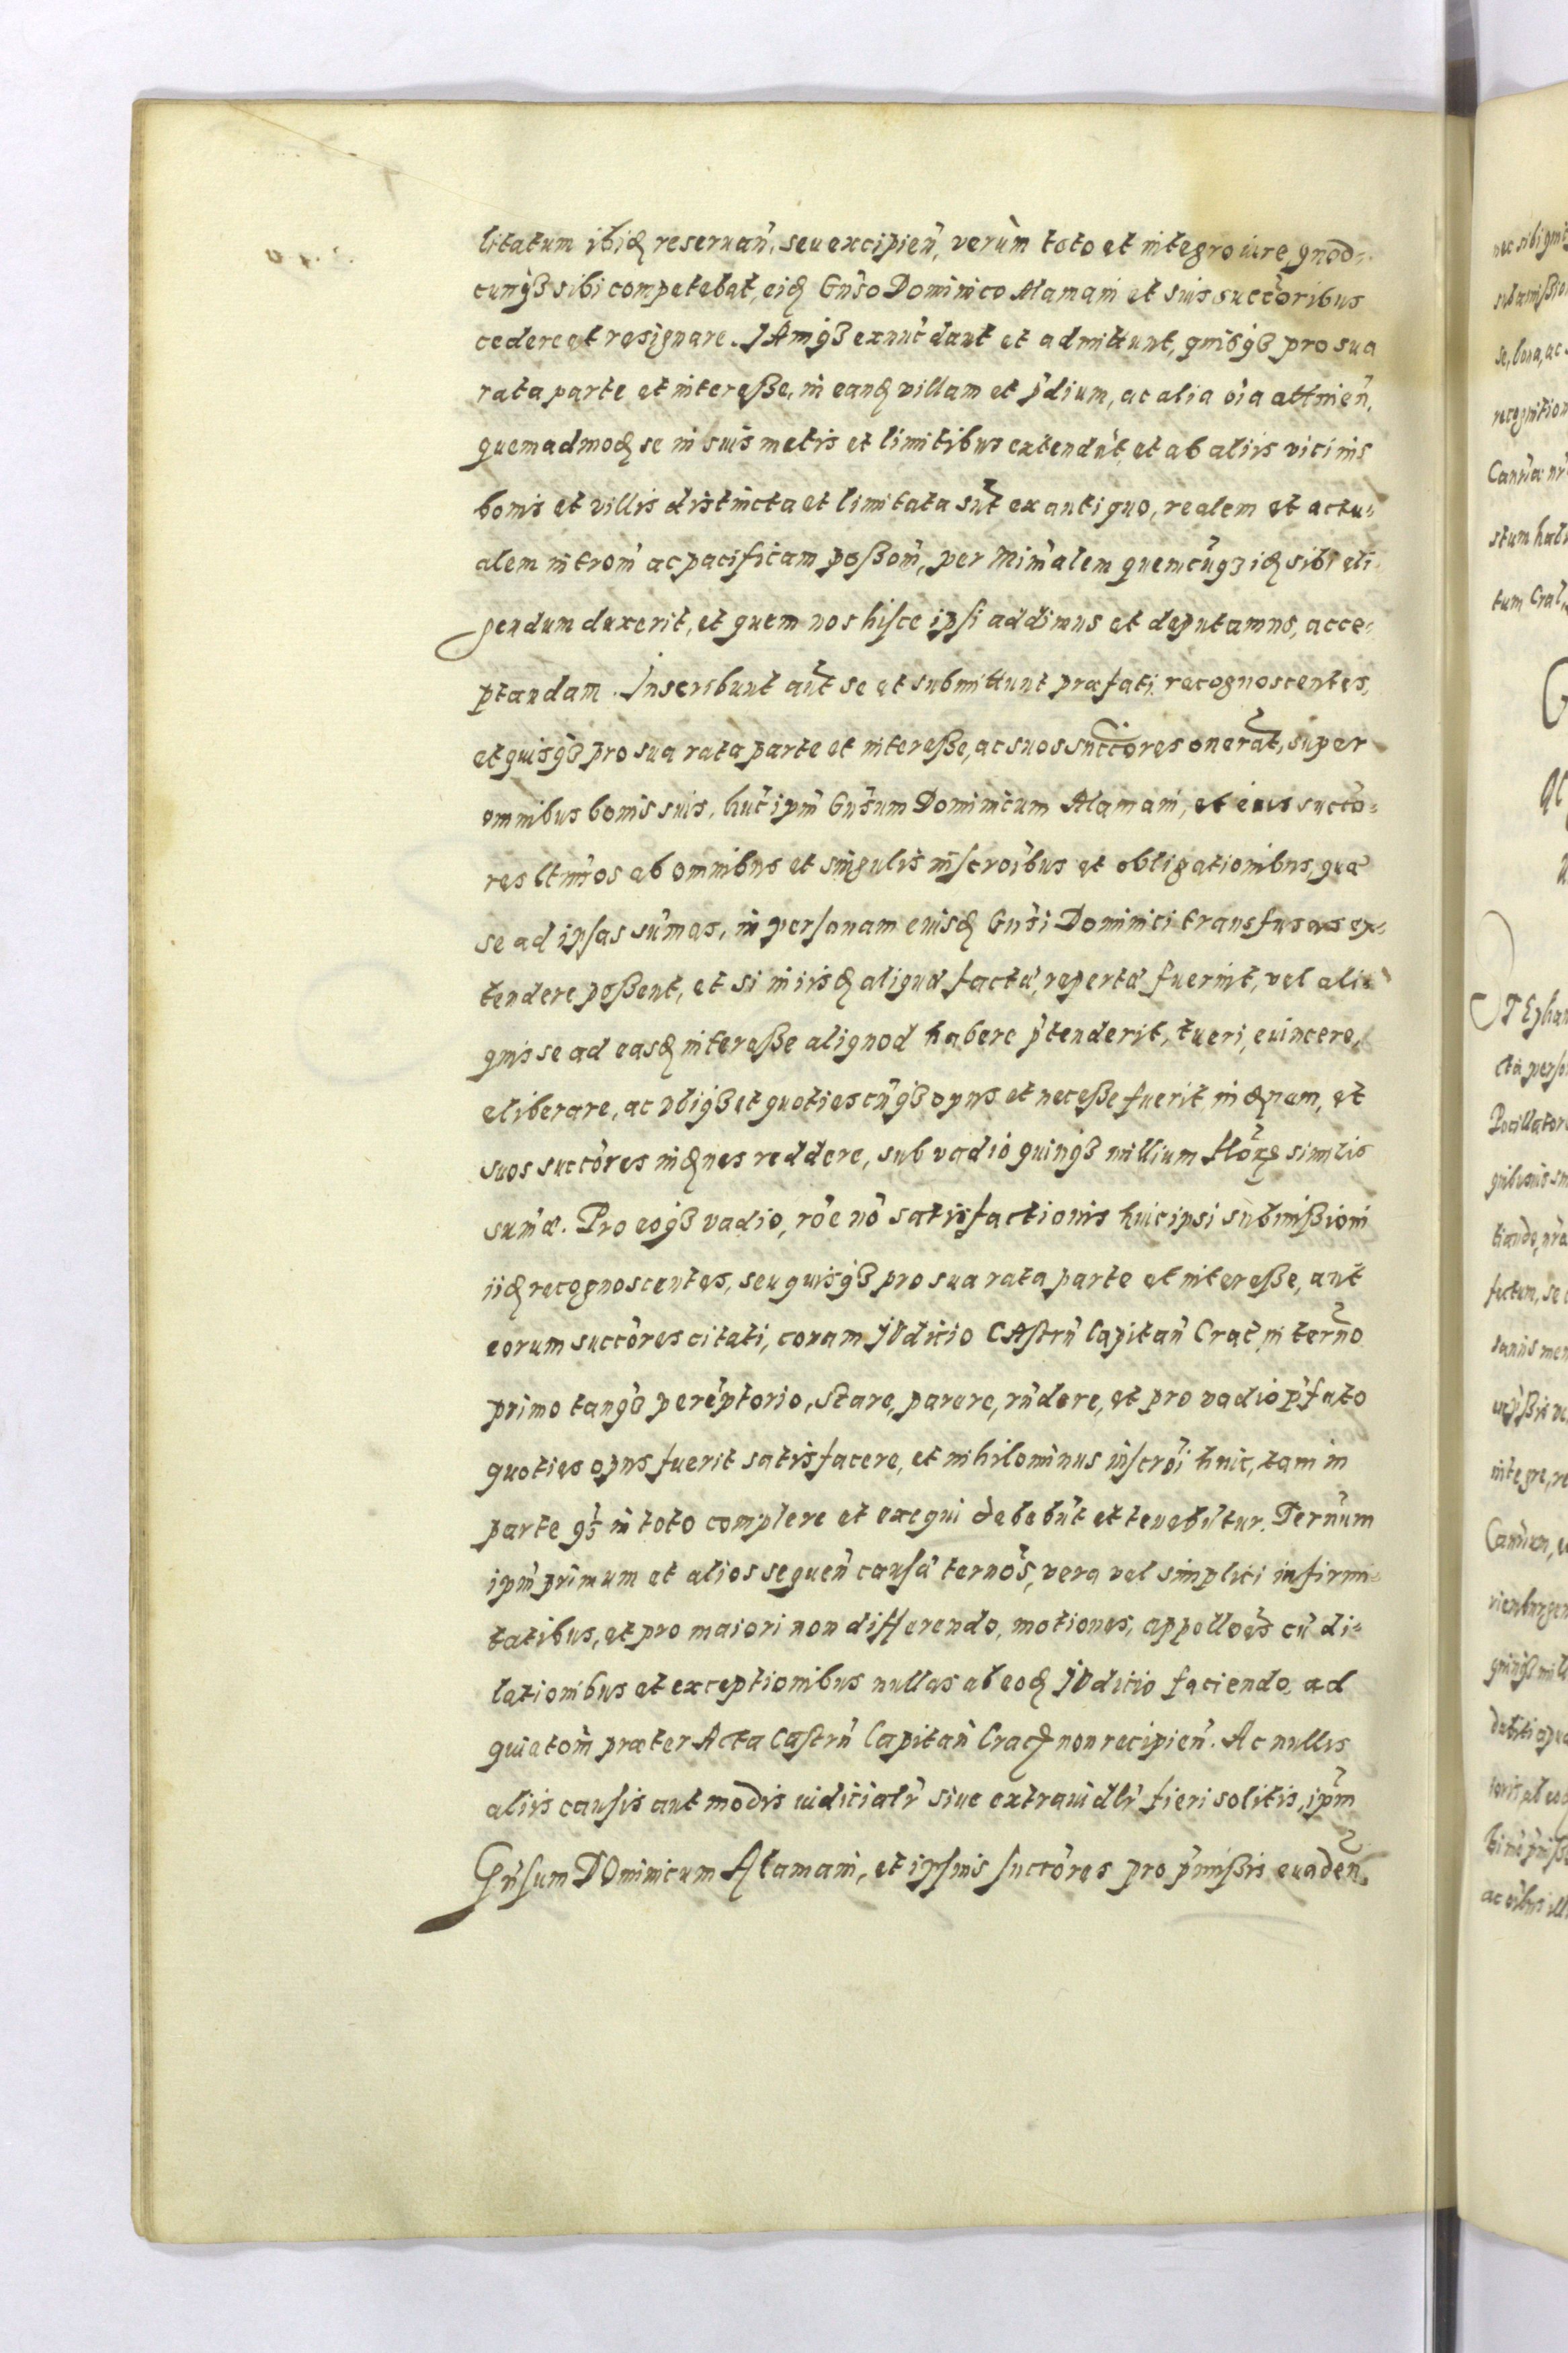 litatum ibidꝫ reseruan̄, seu excipien̄, verùm toto et integro iure, quod-
cunqꝫ sibi competebat, eidꝫ Gn̄so Dominico Alamani et suis succōribus
cedere et resignare. IAmqꝫ ex nūc dant et admittunt, quisqꝫ pro sua
rata parte et interesse, in eandꝫ villam et p̄dium, ac alia oīa attinen̄,
quemadmodꝫ se in suis metis et limitibus extendūt, et ab aliis vicinis
bonis et villis distincta et limitata sūt ex antiquo, realem et actu-
alem intrōm ac pacificam possōm, per Minr̄alem quemcūqꝫ idꝫ sibi eli-
gendum duxerit, et quem nos hisce ipsi addimus et deputamus, acce-
ptandam. Inscribunt aūt se et submittunt præfati recognoscentes,
et quisqꝫ pro sua rata parte et interesse, ac suos succōres onerāt, super
omnibus bonis suis, hūc ipm̄ Gn̄sum Dominicum Alamani, et eius succō-
res ltimōs ab omnibus et singulis inscrōibus et obligationibus, quæ
se ad ipsas sūmas, in personam eiusdꝫ Gn̄si Dominici transfusas ex-
tendere possent, et si in iisdꝫ aliqua facta, reperta fuerint, vel ali-
quis se ad easdꝫ interesse aliquod habere p̄tenderit, tueri, euincere,
eliberare, ac vbiqꝫ et quotiescūqꝫ opus et necesse fuerit indꝫnem, et
suos succōres indꝫnes reddere, sub vadio quinqꝫ millium flōrꝫ similis
sum̄æ. Pro eoqꝫ vadio, rōe nō satisfactionis huic ipsi submissioni
iidꝫ recognoscentes, seu quisqꝫ pro sua rata parte et interesse, aut
eorum succōres citati, coram IVditio CAstrn̄ Capitan̄ Crac̄ in termn̄o
primo tanqꝫ perēptorio, stare, parere, rn̄dere, et pro vadio p̄fato
quoties opus fuerit satisfacere, et nihilominus inscrōi huic, tam in
parte q̄ꝫ in toto complere et exequi debebūt et tenebūtur. Termn̄um
ipm̄ primum et alios sequen̄ causā termn̄os, vera vel simplici infirmi-
tatibus, et pro maiori non differendo, motiones, appellōes cū di-
lationibus et exceptionibus nullas ab eodꝫ IVditio faciendo, ad
quietōm præter Acta Castrn̄ Capitan̄ Crac̄ non recipien̄. Ac nullis
aliis causis aut modis iuditialr̄ siue extraiudlr̄ fieri solitis, ipm̄
Gn̄sum DOminicum Alamani, et ipsius succōres pro p̄missis euaden̄.